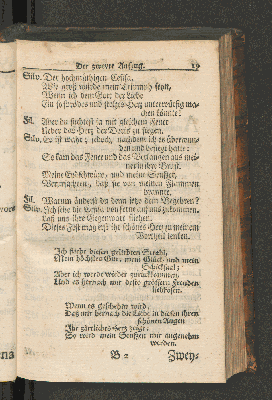 Der zweyte Aufzug. 19
Silv. Der hochmüthigen Celisa.
Wie groß würde mein Triumph seyn,
Wenn ich dem Gott der Liebe
Ein so sprödes und stoltzes Herz unterwürfig ma-
chen könnte!
Fil. Aber du suchtest ja mit gleichem Feuer
Ueber das Herz der Doris zu siegen.
Silv. Es ist wahr; jedoch, nachdem ich es überwun-
den und besiegt hatte;
So kam das Feuer und das Verlangen aus mei-
ner in ihre Brust.
Meine und meine Seufzer,
Verschwanden, daß sie von meinen Flammen
brannte.
Fil. Warum änderst du denn jetzo dein Begehren?
Silv. Ich sehe die Celisa von ferne auf uns zukommen.
Laß uns ihre Gegenwart fliehen.
Dieses Fest mag erst ihr schönes Herz zu meinem
Vortheil lenken.
Ich fliehe diesen geliebten Strahl,
Mein höchstes Gut, mein Glück und mein
Schicksal;
Aber ich werde wieder zurückkommen,
Und es hernach mit desto grössern Freuden
liebkosen.
Wenn es geschehen wird,
Daß mir hernach die Liebe in diesen ihren
schönen Augen
Ihr zärtliches Herz zeigt;
So werd mein Seufzen mir angenehm
werden.
B 2 Zwey-